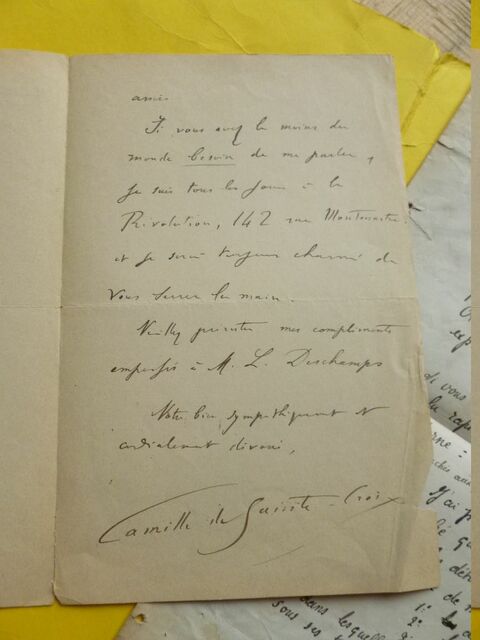 amis
Si vous avez le moins du
monde besoin de me parler,
je suis tous les jours à la
Révolution, 142 rue Montmartre.
et je serai toujours charmé de
vous serrer la main.
Veuillez présenter mes compliments
empressés à M. L. Deschamps
Votre bien sympathiquement et
cordialement dévoué,
Camille de Sainte-Croix
di vous
J'ai p
dans lesquelle
sous ses
1°
2°